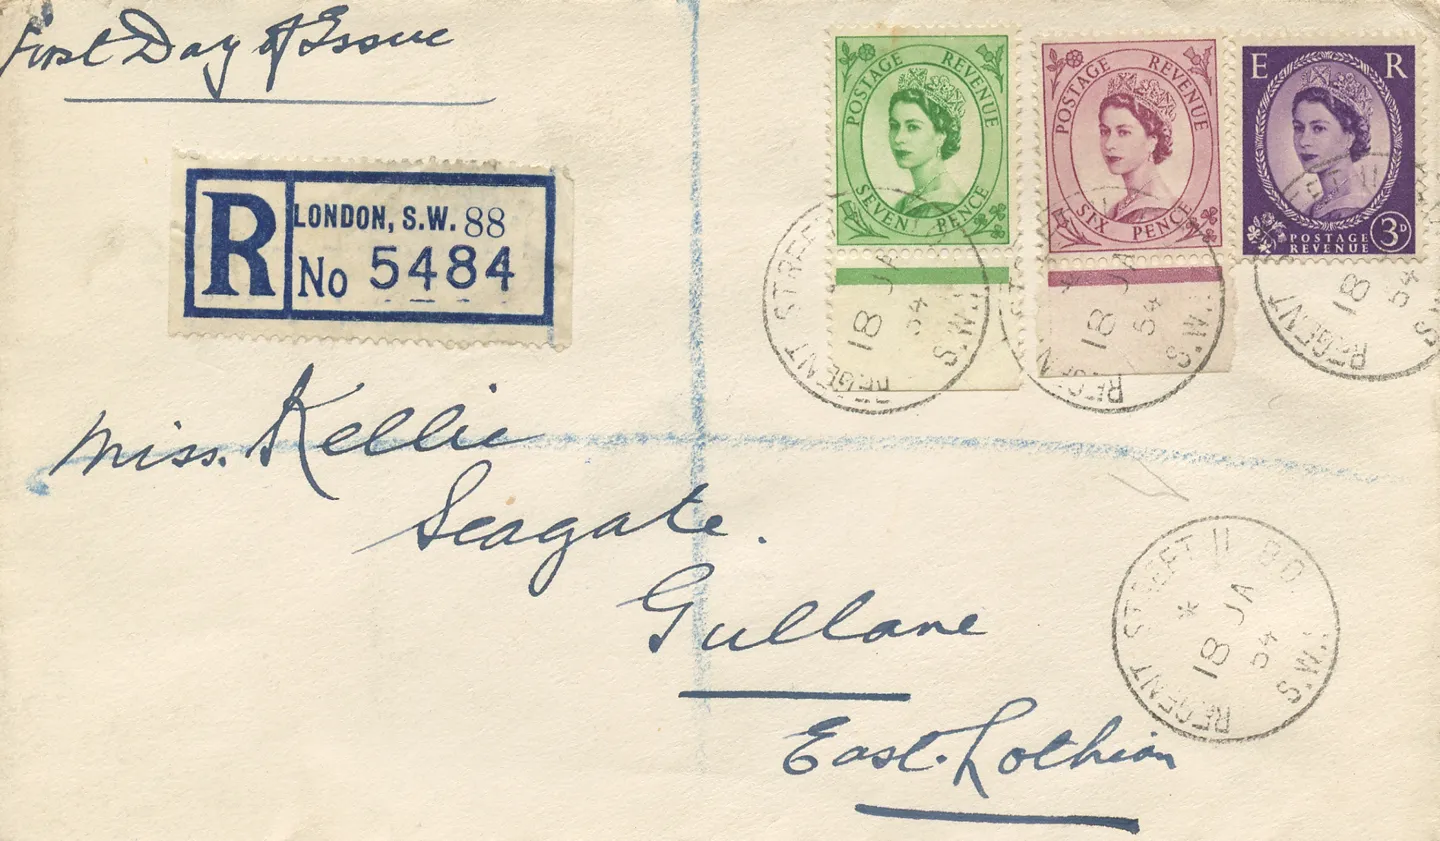 First Day of Issue
R
LONDON, S.W. 88
No 5484
POSTAGE REVENUE
SEVEN PENCE
POSTAGE REVENUE
SIX PENCE
E R
POSTAGE
REVENUE
3D
REGENT STREET
18 JA
54
S.W.1.
REGENT
18 JA
54
S.W.1.
REGENT
18
54
S.W.
Miss. Kellie
Seagate.
Gullane
East. Lothian
REGENT STREET II B.O.
*
18 JA
54
S.W.1.